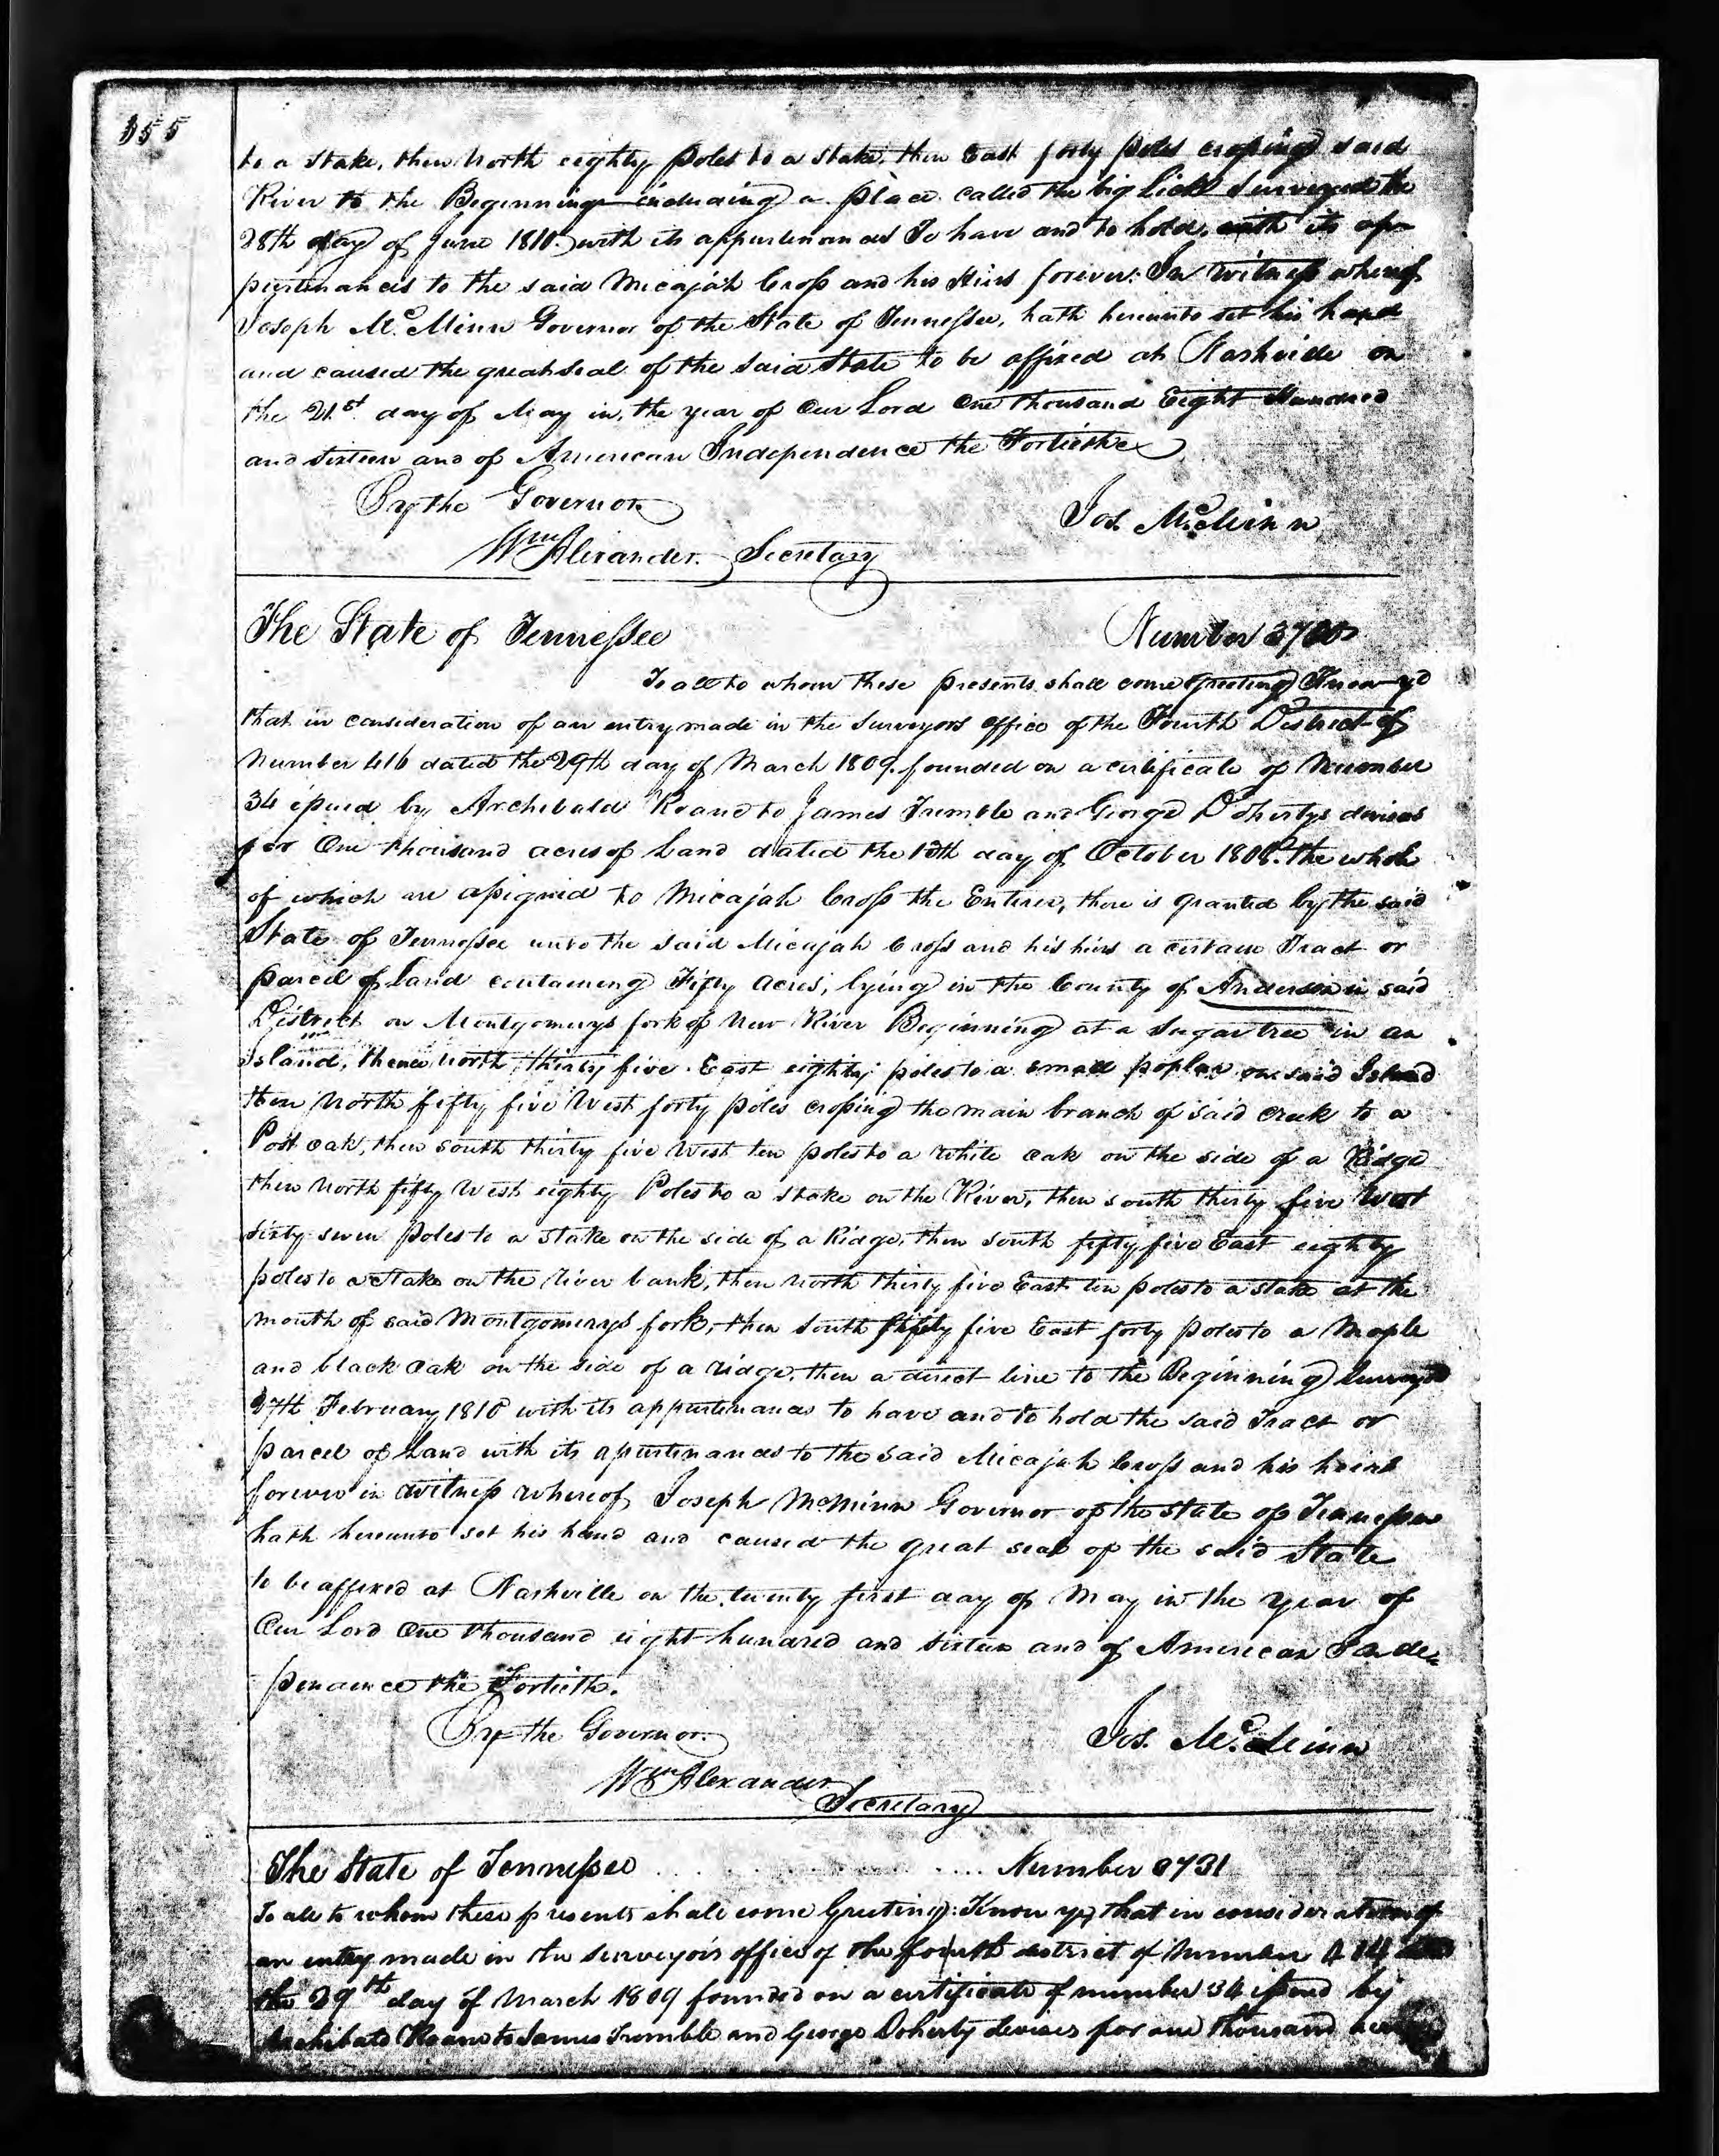 355
to a stake, then North eighty poles to a stake, then East forty poles crossing said
River to the Beginning including a place called the big Lick Surveyed the
28th day of June 1810 with its appurtenances To have and to hold, with its ap-
purtenances to the said Micajah Cross and his Heirs forever: In Witness whereof
Joseph McMinn Governor of the State of Tennessee, hath hereunto set his hand
and caused the great seal of the said State to be affixed at Nashville on
the 21st day of May in, the year of Our Lord One thousand Eight Hundred
and sixteen and of American Independence the Fortieth
By the Governor
Jos. McMinn
Wm Alexander. Secretary
The State of Tennessee Number
To all to whom these presents shall come Greeting Know ye
that in consideration of an entry made in the Surveyors office of the Fourth District of
Number 416 dated the 29th day of March 1809. founded on a certificate of Number
34 issued by Archibald Roane to James Trimble and George Dohertys devises
for One thousand acres of Land dated the 13th day of October 1808. the whole
of which are assigned to Micajah Cross the Enterer, there is granted by the said
State of Tennessee unto the said Micajah Cross and his heirs a certain Tract or
parcel of Land containing Fifty Acres, lying in the County of Anderson in said
District on Montgomerys fork of New River Beginning at a Sugar tree in an
Island, thence North thirty five East eighty poles to a small poplar on said Island
then North fifty five West forty poles crossing the main branch of said creek to a
Post oak, then south thirty five West ten poles to a White oak on the side of a Ridge
then North fifty West eighty Poles to a stake on the River, then south thirty five West
sixty seven poles to a stake on the side of a Ridge, then south fifty five East eighty
poles to a stake on the river bank, then North thirty five East ten poles to a stake at the
mouth of said Montgomerys fork, then South fifty five East forty poles to a Maple
and black Oak on the side of a ridge, then a direct line to the Beginning Surveyed
27th February 1810 with its appurtenances to have and to hold the said Tract or
parcel of Land with its apurtenances to the said Micajah Cross and his heirs
forever in witness whereof Joseph McMinn Governor of the State of Tennessee
hath hereunto set his hand and caused the great seal of the said State
to be affixed at Nashville on the twenty first day of May in the year of
Our Lord One thousand eight hundred and sixteen and of American Inde-
pendence the Fortieth.
By the Governor.
Jos. McMinn
Wm Alexander
Secretary
The State of Tennessee Number 3731
To all to whom these presents shall come Greeting: Know ye, that in consideration of
an entry made in the surveyors office of the fourth district of Number
the 29th day of March 1809 founded on a certificate of number 34 issued by
Archibald Roane to James Trimble and George Doherty devises for one thousand